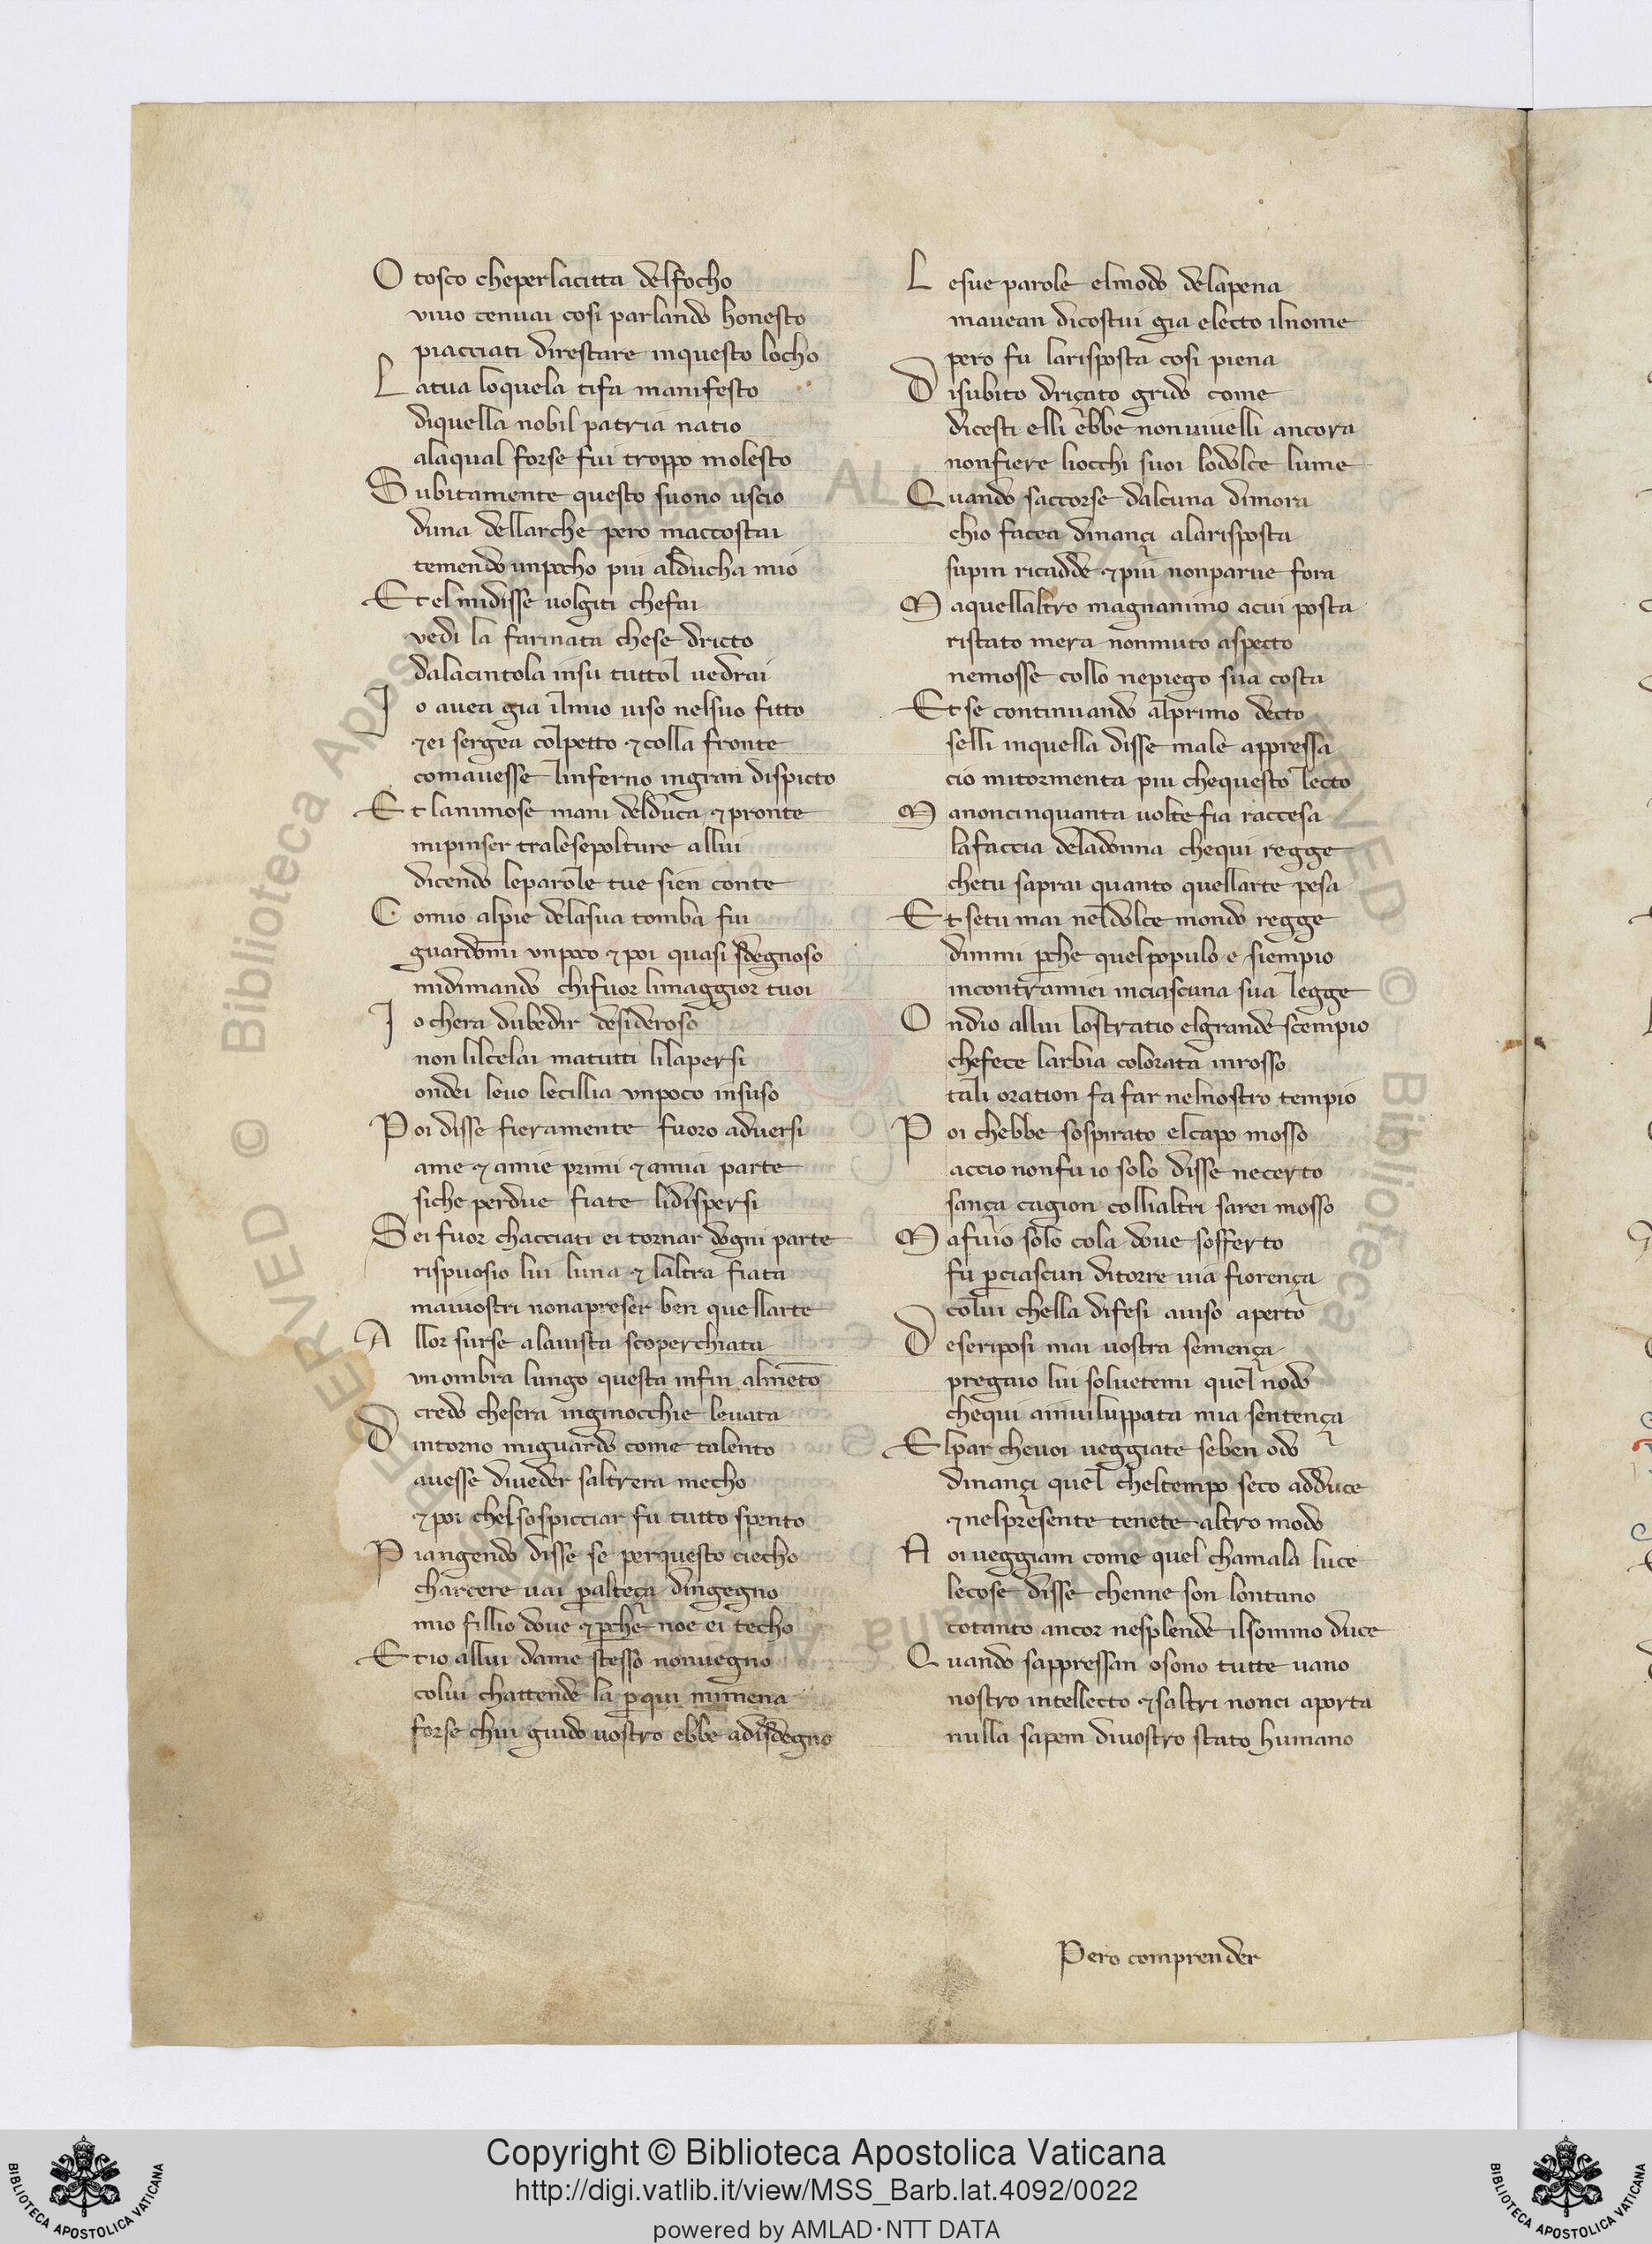 O tosco cheperlacitta delfocho
vivo tenuai cosi parlando honesto
piacciati direstare inquesto locho
L atua loquela tifa manifesto
diquella nobil patria natio
alaqual forse fui troppo molesto
S ubitamente questo suono uscio
duna dellarche pero maccostai
temendo unpocho piu alducha mio
E t el midisse volgiti chefai
vedi la farinata chese dricto
dalacintola insu tuttol vedrai
I o avea gia ilmio viso nelsuo fitto
⁊ei sergea colpetto ⁊colla fronte
comavesse linferno ingran dispicto
E t lanimose mani delduca ⁊ pronte
mipinser tralesepolture allui
dicendo leparole tue sien conte
C omio alpie delasua tomba fui
guardommi vnpoco ⁊ poi quasi sdegnoso
midimando chifuor limaggior tuoi
I o chera dubedir desideroso
non lilcelai matutti lilapersi
ondei levo lecillia vnpoco insuso
P oi disse fieramente fuoro adversi
ame ⁊ amie primi ⁊ amia parte
siche perdue fiate lidispersi
S ei fuor chacciati ei tornar dogni parte
rispuosio lui luna ⁊ laltra fiata
maivostri nonapreser ben quellarte
A llor surse alavista scoperchiata
vnombra lungo questa infin almeto
credo chesera inginocchie levata
D intorno miguardo come talento
avesse diveder saltrera mecho
⁊ poi chelsospicciar fu tutto spento
P iangendo disse se perquesto ciecho
charcere vai palteça dingegno
mio fillio dove ⁊ pche noe ei techo
E tio allui dame stesso nonvegno
colui chattende la pqui mimena
forse chui guido vostro ebbe adisdegno
L esue parole elmodo delapena
mavean dicostui gia electo ilnome
pero fu larisposta cosi piena
D isubito driçato grido come
dicesti elli ebbe nonvivelli ancora
nonfiere liocchi suoi lodolce lume
Q uando saccorse dalcuna dimora
chio facea dinançi alarisposta
supin ricadde ⁊ piu nonparve fora
M aquellaltro magnanimo acui posta
ristato mera nonmuto aspecto
nemosse collo nepiego sua costa
E t se continuando alprimo decto
selli inquella disse male appressa
cio mitormenta piu chequesto lecto
M anoncinquanta volte fia raccesa
lafaccia deladonna chequi regge
chetu saprai quanto quellarte pesa
E t setu mai neldolce mondo regge
dimmi pche quelpopulo e siempio
incontramiei inciascuna sua legge
O ndio allui lostratio elgrande scempio
chefece larbia colorata inrosso
tali oration fa far nelnostro tempio
P oi chebbe sospirato elcapo mosso
accio nonfu io solo disse necerto
sança cagion collialtri sarei mosso
M afuio solo cola dove sofferto
fu pciascun ditorre via fiorença
colui chella difesi aviso aperto
D eseriposi mai vostra semença
pregaio lui solvetemi quel nodo
chequi aiuiluppata mia sentença
E lpar chevoi veggiate seben odo
dinançi quel cheltempo seco adduce
⁊ nelpresente tenete altro modo
N oi veggiam come quel chamala luce
lecose disse chenne son lontano
cotanto ancor nesplende ilsommo duce
Q uando sappressan osono tutte vano
nostro intellecto ⁊saltri nonci aporta
nulla sapem divostro stato humano
Pero comprender
Copyright © Biblioteca Apostolica Vaticana
http://digi.vatlib.it/view/MSS_Barb.lat.4092/0022
powered by AMLAD·NTT DATA
BIBLIOTECA APOSTOLICA VATICANA
BIBLIOTECA APOSTOLICA VATICANA